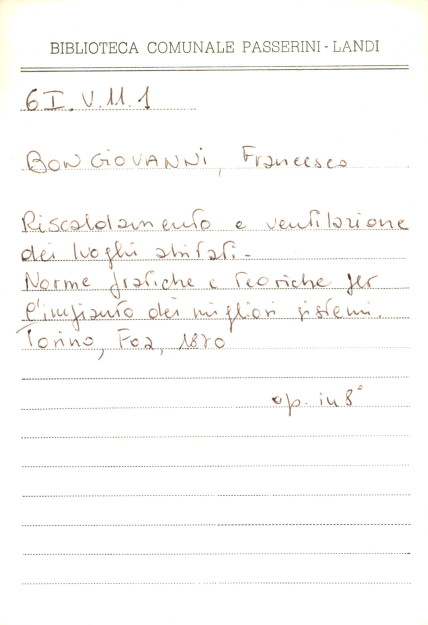 BIBLIOTECA COMUNALE PASSERINI-LANDI
6I.V.11.1
BONGIOVANNI, Francesco
Riscaldamento e ventilazione
dei luoghi abitati.-
Norme pratiche e teoriche per
l'impianto dei migliori sistemi.
Torino, Foa, 1870
op. in 8°